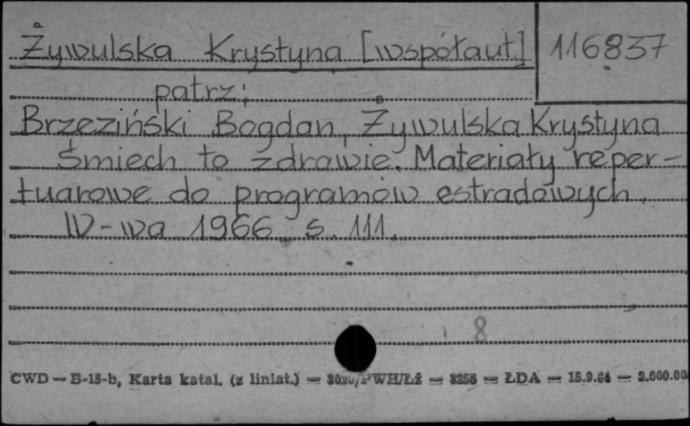 Żywulska Krystyna [współaut.] 116837
patrz:
Brzeziński Bogdan, Żywulska Krystyna
Śmiech to zdrowie. Materiały reper-
tuarowe do programów estradowych.
W-wa 1966 s. 111.
8
CWD — B-15-b, Karta katal. (z liniat.) — /PWH/Łź — 3256 — ŁDA — 15.9.64 —